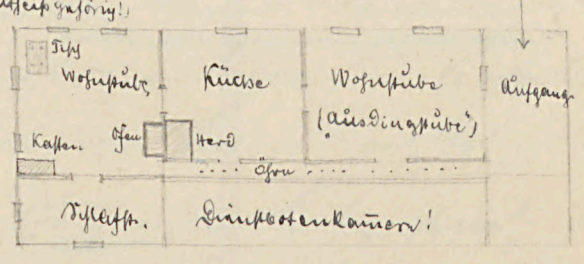 Tisch
Wohnstube,
Küche
Wohnstube
("Ausdingstube")
Aufgang
Kasten
Ofen
Herd
Öhrn
Schlafst.
Dienstbotenkamern!